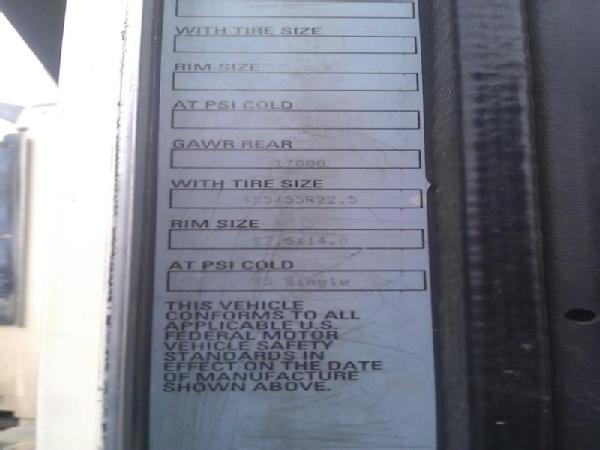 WITH TIRE SIZE
RIM SIZE
AT PSI COLD
GAWR REAR
17000
WITH TIRE SIZE
455/55R22.5
RIM SIZE
22.5X14.0
AT PSI COLD
Single
THIS VEHICLE
CONFORMS TO ALL
APPLICABLE U.S.
FEDERAL MOTOR
VEHICLE SAFETY
STANDARDS IN
EFFECT ON THE DATE
OF MANUFACTURE
SHOWN ABOVE.